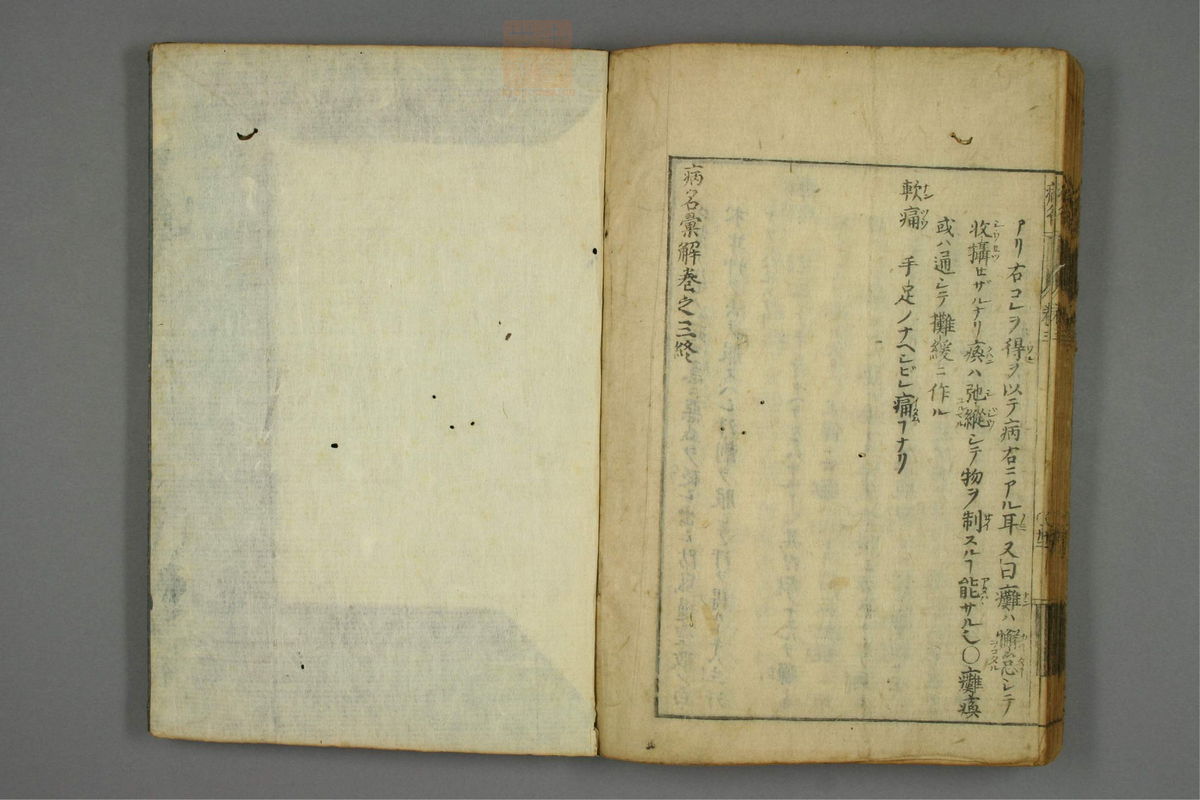 アリ右コレヲ得ヲ以テ病右ニアル耳又曰癱ハ懈怠シテ
收攝セザルナリ瘓ハ弛縱シテ物ヲ制スルヿ能サル也〇癱瘓
或ハ通シテ攤緩ニ作ル
軟痛 手足ノナヘシビレ痛ヿナリ
病名彙解巻之三終